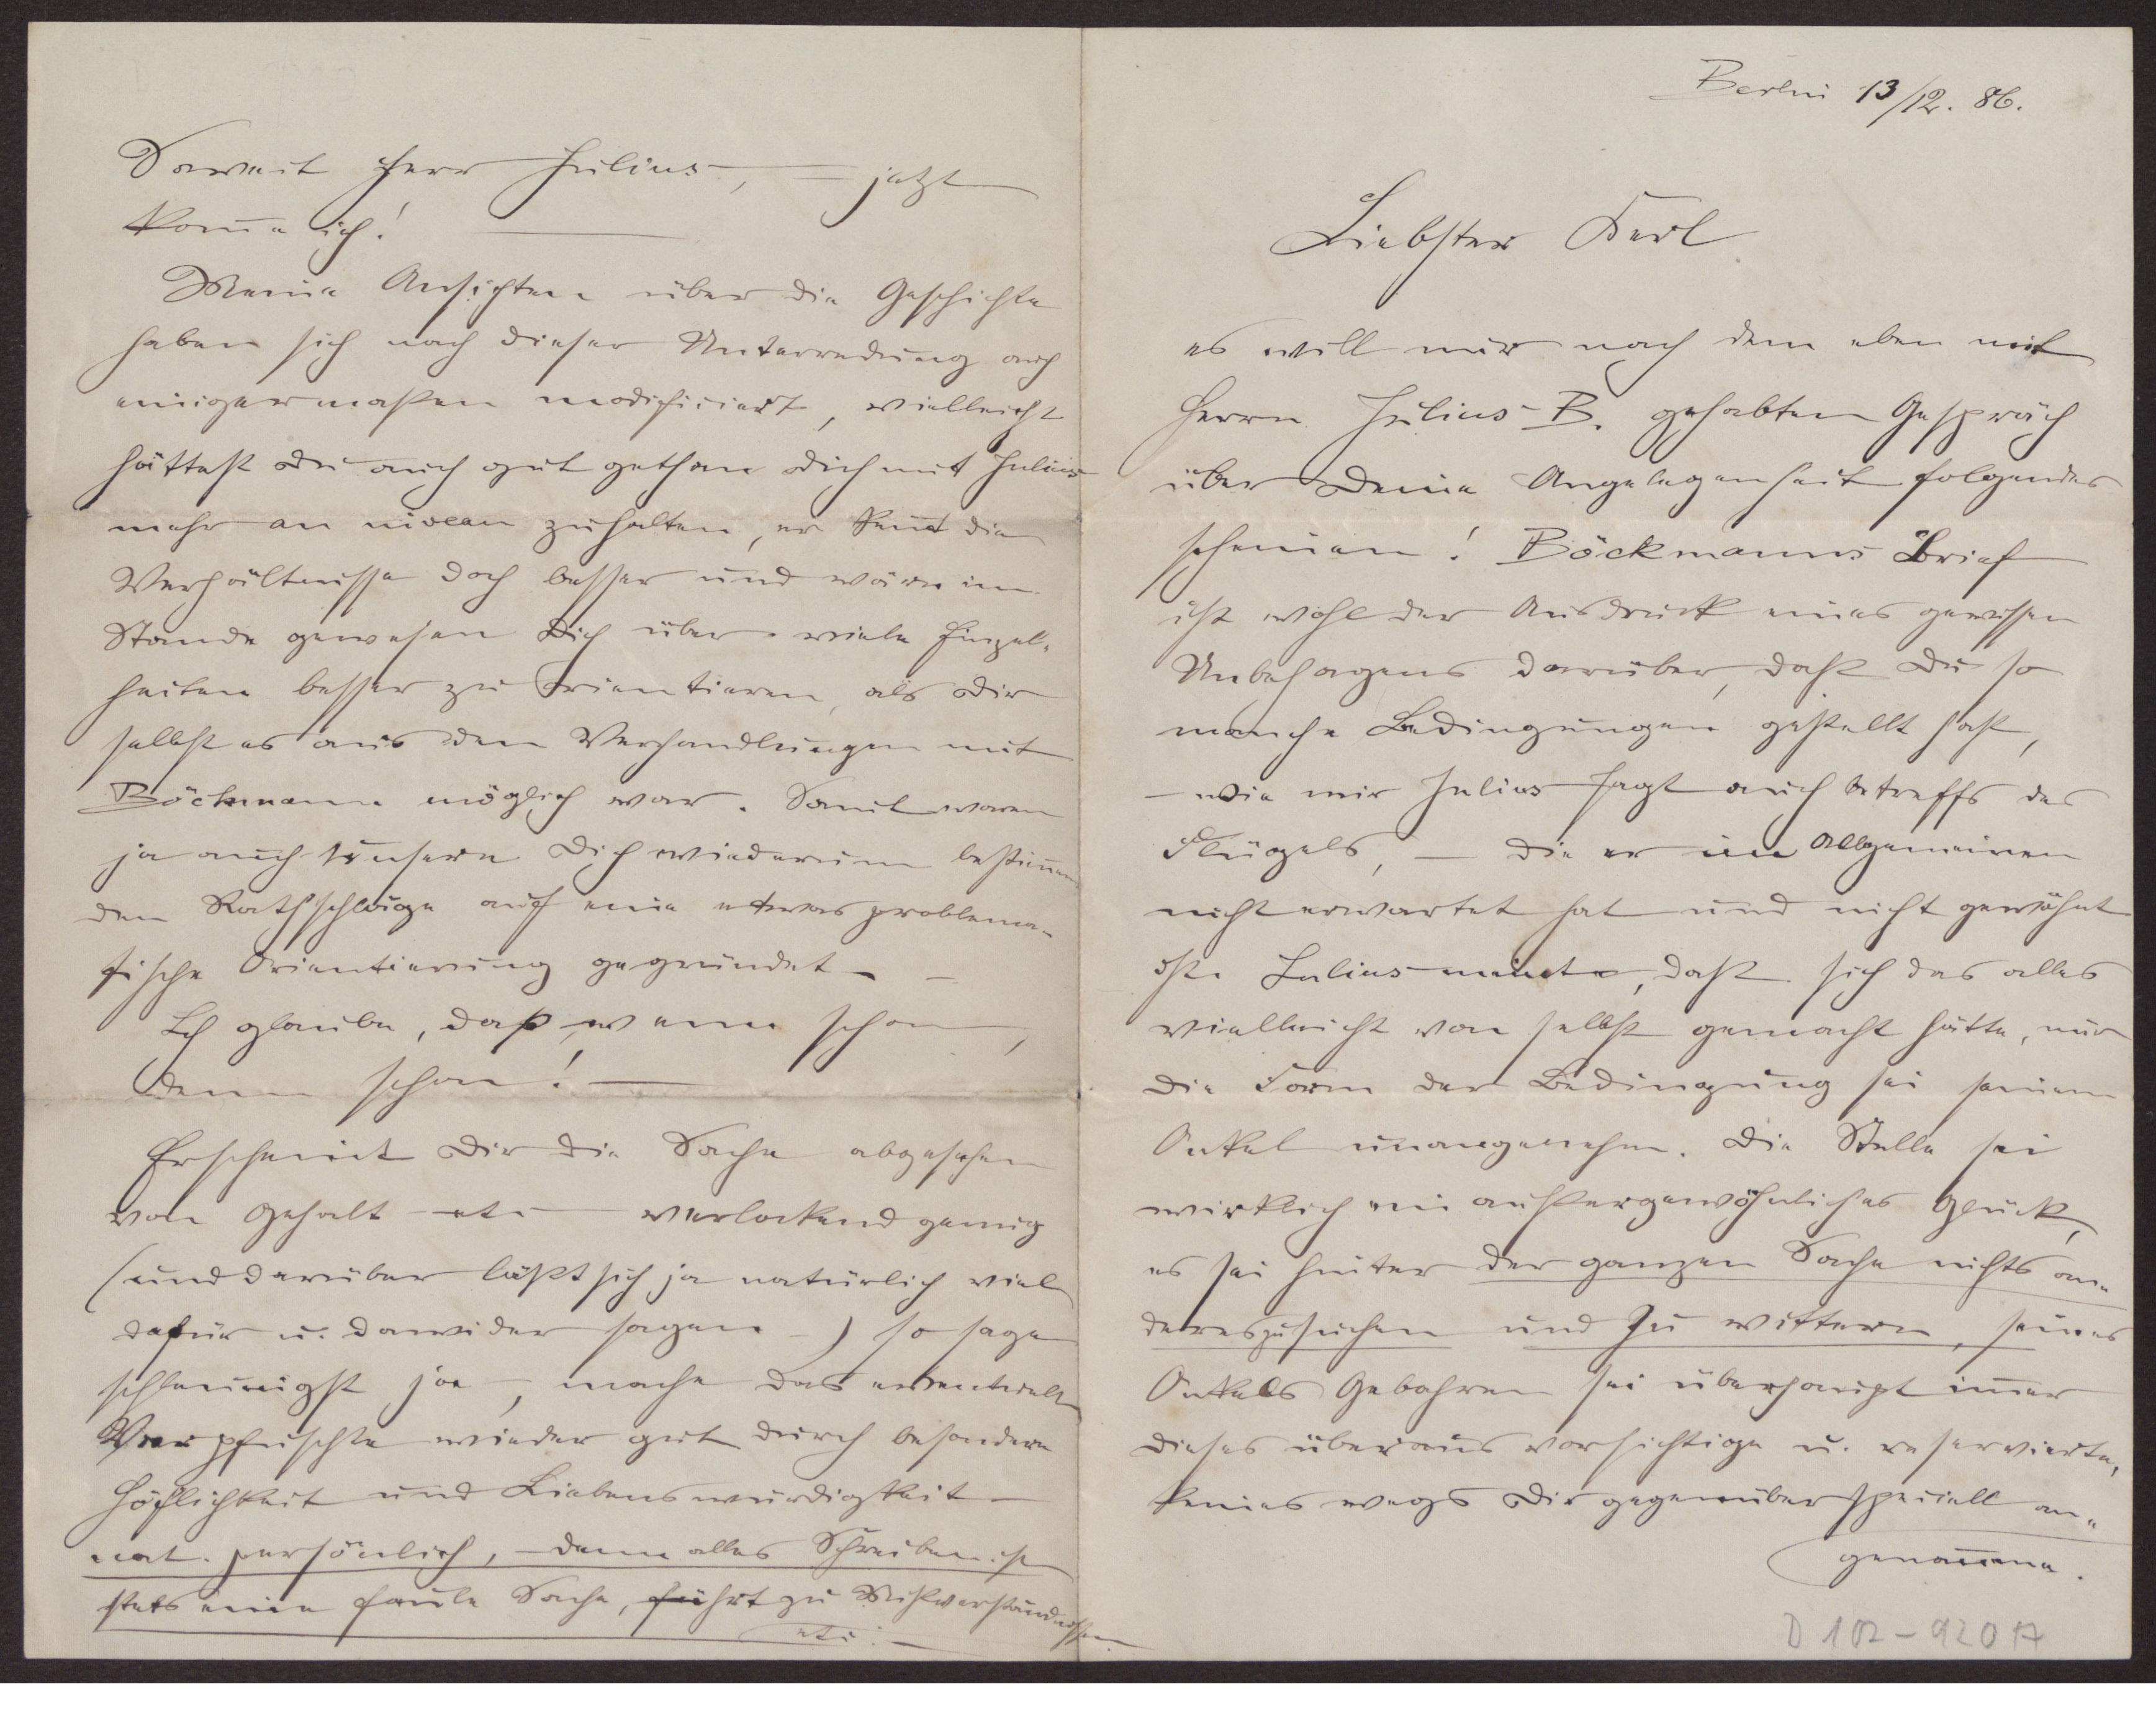 Berlin 13/12. 86.
Liebster Kerl
es will mir nach dem eben mit
Herrn Julius B. gehabten Gespräch
über Deine Angelegenheit folgendes
scheinen! Böckmanns Brief
ist wohl der Ausdruck eines gewissen
Unbehagens darüber, daß Du so
manche Bedingungen gestellt hast,
– wie mir Julius sagt auch betreffs des
Flügels, – die er im Allgemeinen
nicht erwartet hat und nicht gewöhnt
ist. Julius meinte, daß sich das alles
vielleicht von selbst gemacht hätte, nur
die Form der Bedingung sei seinem
Onkel unangenehm. Die Stelle sei
wirklich ein außergewöhnliches Glück,
es sei hinter der ganzen Sache nichts an-
deres zu suchen und zu wittern, seines
Onkels Gebahren sei überhaupt im̅er
dieses überaus vorsichtige u. reservierte,
keines wegs Dir gegenüber speciell an-
genom̅ene.
D 102-920 A
Soweit Herr Julius, – jetzt
kom̅e ich!
Meine Ansichten über die Geschichte
haben sich nach dieser Unterredung auch
einigermaßen modificiert, vielleicht
hättest Du auch gut gethan Dich mit Julius
mehr au niveau zu halten, er ken̅t die
Verhältnisse doch besser und wäre im
Stande gewesen Dich über viele Einzel-
heiten besser zu orientieren, als Dir
selbst es aus den Verhandlungen mit
Böckmann möglich war. Somit waren
ja auch unsere Dich wiederum bestim̅en-
den Rathschläge auf eine etwas problema-
tische Orientierung gegründet. –
Ich glaube, daß, wenn schon,
denn schon! –
Erscheint Dir die Sache abgesehen
von Gehalt etc verlockend genug
(und darüber läßt sich ja natürlich viel
dafür u. dawider sagen –) so sage
schleunigst ja, mache das eventuell
Verpfuschte wieder gut durch besondere
Höflichkeit und Liebenswürdigkeit –
nat. persönlich, – denn alles Schreiben ist
stets eine faule Sache, führt zu Mißverständnissen
etc. –